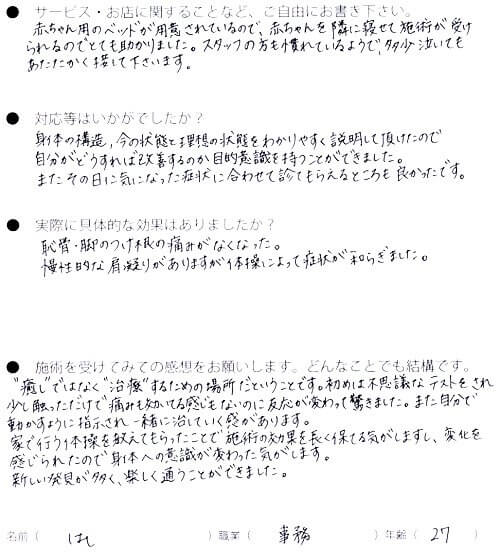 ● サービス・お店に関することなど、ご自由にお書き下さい。
赤ちゃん用のベッドが用意されているので、赤ちゃんを隣に寝せて施術が受け
られるのでとても助かりました。スタッフの方も慣れているようで、多少泣いても
あたたかく接して下さいます。
● 対応等はいかがでしたか？
身体の構造、今の状態と理想の状態をわかりやすく説明して頂けたので
自分がどうすれば改善するのか目的意識を持つことができました。
またその日に気になった症状に合わせて診てもらえるところも良かったです。
● 実際に具体的な効果はありましたか？
恥骨・脚のつけ根の痛みがなくなった。
慢性的な肩凝りがありますが体操によって症状が和らぎました。
● 施術を受けてみての感想をお願いします。どんなことでも結構です。
"癒し"ではなく"治療"するための場所だということです。初めは不思議なテストをされ
少し触っただけで痛みも効いてる感じもないのに反応が変わって驚きました。また自分で
動かすように指示され一緒に治していく感があります。
家で行う体操を教えてもらったことで施術の効果を長く保てる気がしますし、変化を
感じられたので身体への意識が変わった気がします。
新しい発見が多く、楽しく通うことができました。
名前（ ）職業（ 事務 ）年齢（ 27 ）